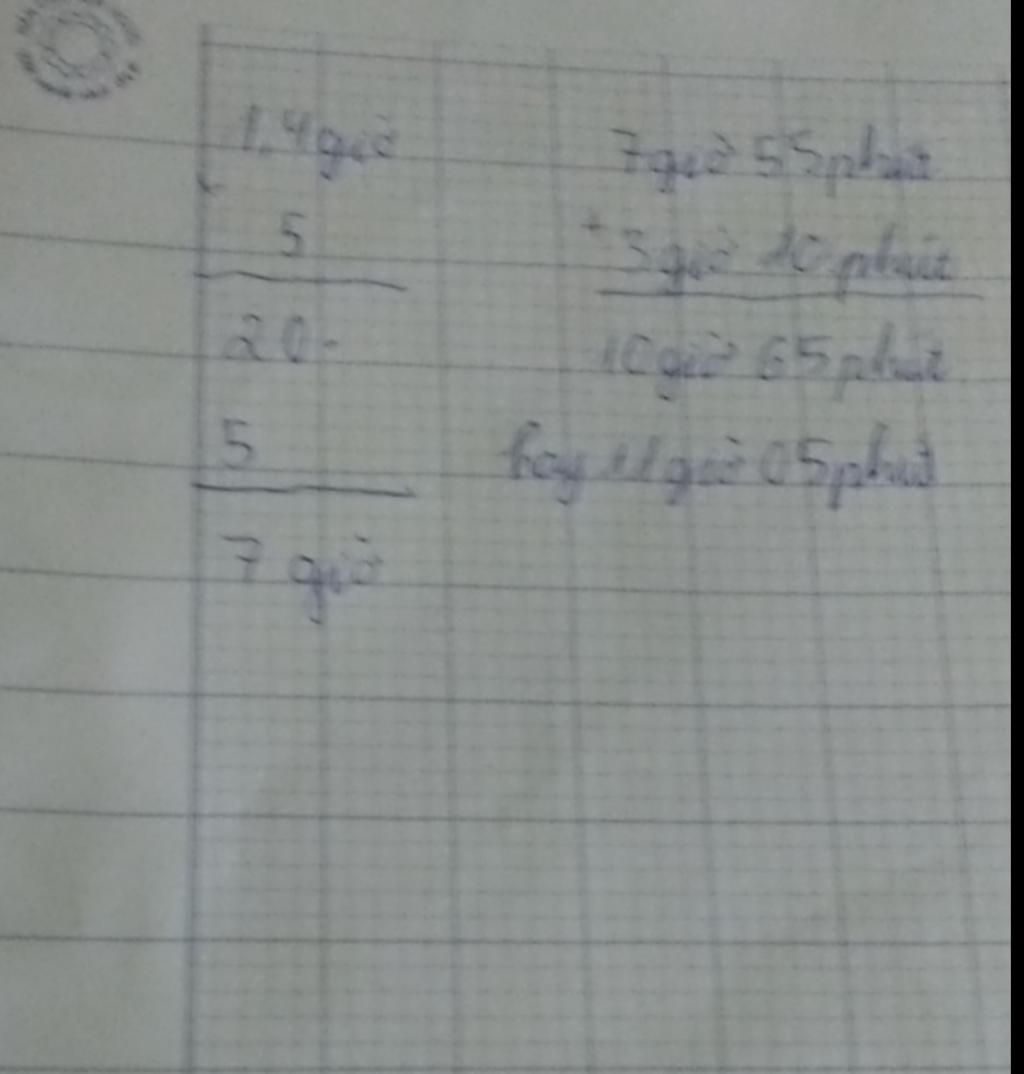 1,4 giờ
5
20
5
7 giờ
7 giờ 55 phút
+ 3 giờ 10 phút
10 giờ 65 phút
hay 11 giờ 05 phút